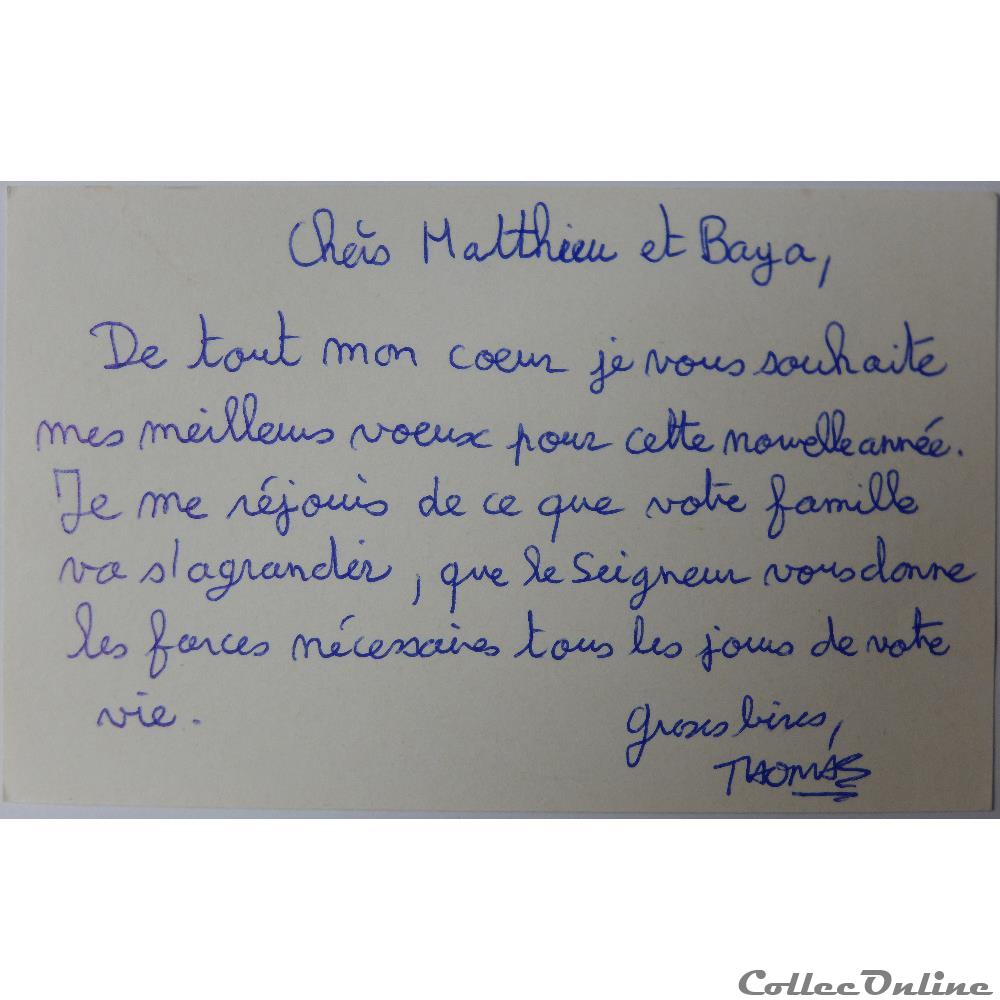 Chers Matthieu et Baya,
De tout mon coeur je vous souhaite
mes meilleurs voeux pour cette nouvelle année.
Je me réjouis de ce que votre famille
va s'agrandir, que le Seigneur vous donne
les forces nécessaires tous les jours de votre
vie.
Groses bises,
THOMAS
CollecOnline